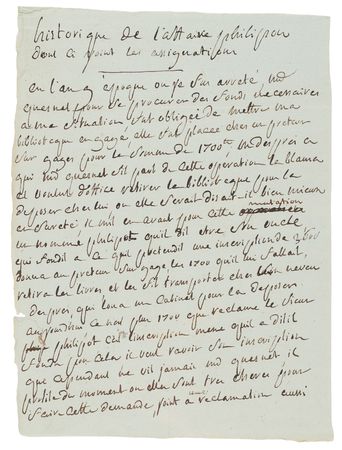 historique de l'affaire philipon
dont ci joint les assignation
en l'an 9 époque ou je fus arreté md
quesnel pour se procurer des fonds necessaires
a ma situation fut obligée de mettre ma
bibliotheque en gage, elle fut placée chez un preteur
sur gages pour la somme de 1700ᵗᵗ. m despres a
qui md quesnel fit part de cette operation la blama
et voulut d'office retirer la bibliotheque pour la
deposer chez lui ou elle serait disait-il bien mieux
en sureté, il mit en avant pour cette mutation
un nommé philipot quil dit etre son oncle
qui fondit a ce que pretendit une inscription de
donna au preteur sur gage les 1700 qu'il fallait,
retira les livres et les fit transporter chez neveu
despres, qui loua un cabinet pour la deposer
aujourdhui ce nest plus 1700 que reclame le sieur
philipot cest l'inscription meme quil a dit il
fondu pour cela il veut ravoir son inscription
que cependant ne vit jamais md quesnel il
profite du moment ou elles sont tres cheres pour
faire cette demande joint a reclamation aussi